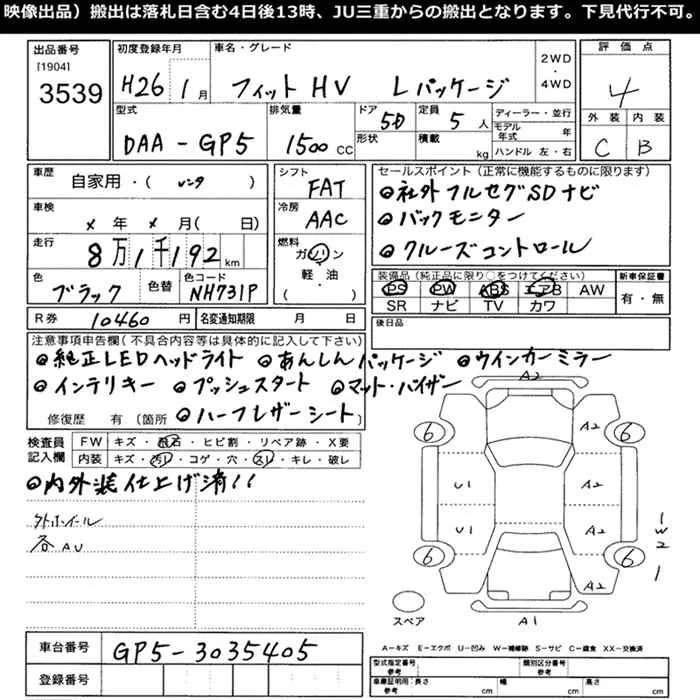 映像出品）搬出は落札日含む4日後13時、JU三重からの搬出となります。下見代行不可。
出品番号
[1904]
3539
初度登録年月
H26 1月
車名・グレード
フィットHV Lパッケージ
2WD
・
4WD
評価点
4
外装 内装
C B
型式
DAA-GP5
排気量
1500cc
ドア
5D
形状
定員
5人
積載
kg
ディーラー・並行
モデル年式 年
ハンドル 左・右
車歴
自家用・（レンタ）
シフト
FAT
セールスポイント（正常に機能するものに限ります）
◎社外フルセグSDナビ
◎バックモニター
◎クルーズコントロール
車検
×年×月（ 日）
冷房
AAC
走行
8万1千192km
燃料
ガソリン
軽・油
（ ）
色
ブラック
色替
色コード
NH731P
装備品（純正品に限り○をつけてください）
PS PW ABS エアB AW
SR ナビ TV カワ
新車保証書
有・無
R券 10460円
名変通知期限 月 日
後日品
注意事項申告欄（不具合内容等は具体的に記入して下さい）
◎純正LEDヘッドライト ◎あんしんパッケージ ◎ウインカーミラー
◎インテリキー ◎プッシュスタート ◎マット・バイザー
修復歴 有（箇所 ◎ハーフレザーシート）
検査員記入欄
FW キズ・飛石・ヒビ割・リペア跡・X要
内装 キズ・汚レ・コゲ・穴・スレ・キレ・破レ
◎内外装仕上げ済!!
外ホイール
各AU
A2
6 A2 6
U1 A2
U1 A2
1
W
2
6 6
1
A2
スペア
A1
A－キズ E－エクボ U－凹み W－補修跡 S－サビ C－腐食 XX－交換済
車台番号
GP5-3035405
登録番号
型式指定番号
参考
類別区分番号
参考
車庫証明用：長さ
参考 cm
幅
cm
高さ
cm